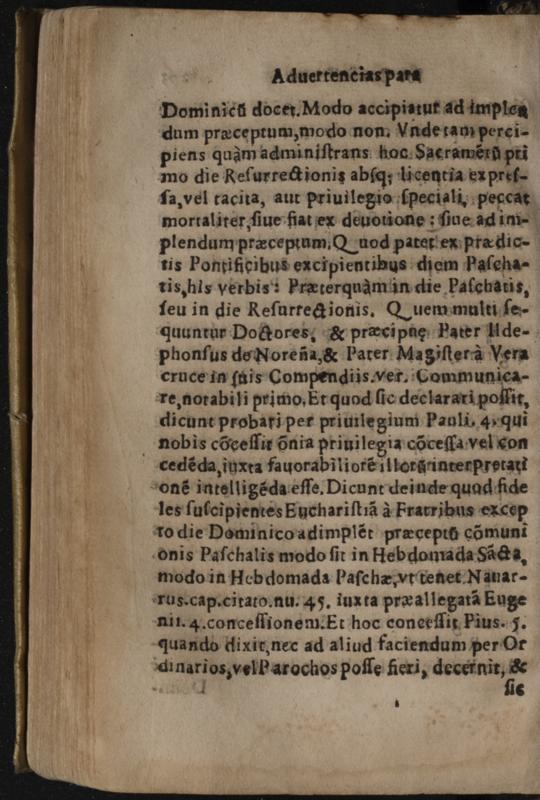 Aduertencias para
Dominicũ docet. Modo accipiatur ad implen
dum præceptum, modo non. Vnde tam perci-
piens quàm administrans hoc Sacramẽtũ pri
mo die Resurrectionis absq; licentia expres-
sa, vel tacita, aut priuilegio speciali, peccat
mortaliter, siue fiat ex deuotione: siue ad im-
plendum præceptum. Quod patet ex prædic-
tis Pontificibus excipientibus diem Pascha-
tis, his verbis: Præterquàm in die Paschatis,
seu in die Resurrectionis. Quem multi se-
quuntur Doctores, & præcipuè Pater Ilde-
phonsus de Noreña, & Pater Magister à Vera
cruce in suis Compendiis. ver. Communica-
re, notabili primo. Et quod sic declarari possit,
dicunt probari per priuilegium Pauli. 4. qui
nobis cõcessit õnia priuilegia cõcessa vel con
cedẽda, iuxta fauorabiliorẽ illorũ interpretati
onẽ intelligẽda esse. Dicunt deinde quod fide
les suscipientes Eucharistiã à Fratribus excep
to die Dominico adimplẽt præceptũ cõmuni
onis Paschalis modo sit in Hebdomada Sãcta,
modo in Hebdomada Paschæ, vt tenet Nauar-
rus. cap. citato. nu. 45. iuxta præallegatã Euge
nii. 4. concessionem. Et hoc concessit Pius. 5.
quando dixit, nec ad aliud faciendum per Or
dinarios, vel Parochos posse fieri, decernit, &
sic